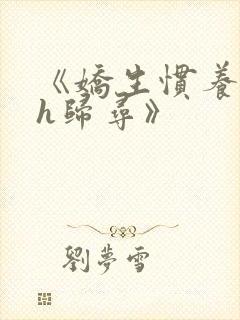 《嬌生慣養
h歸尋》
劉夢雪